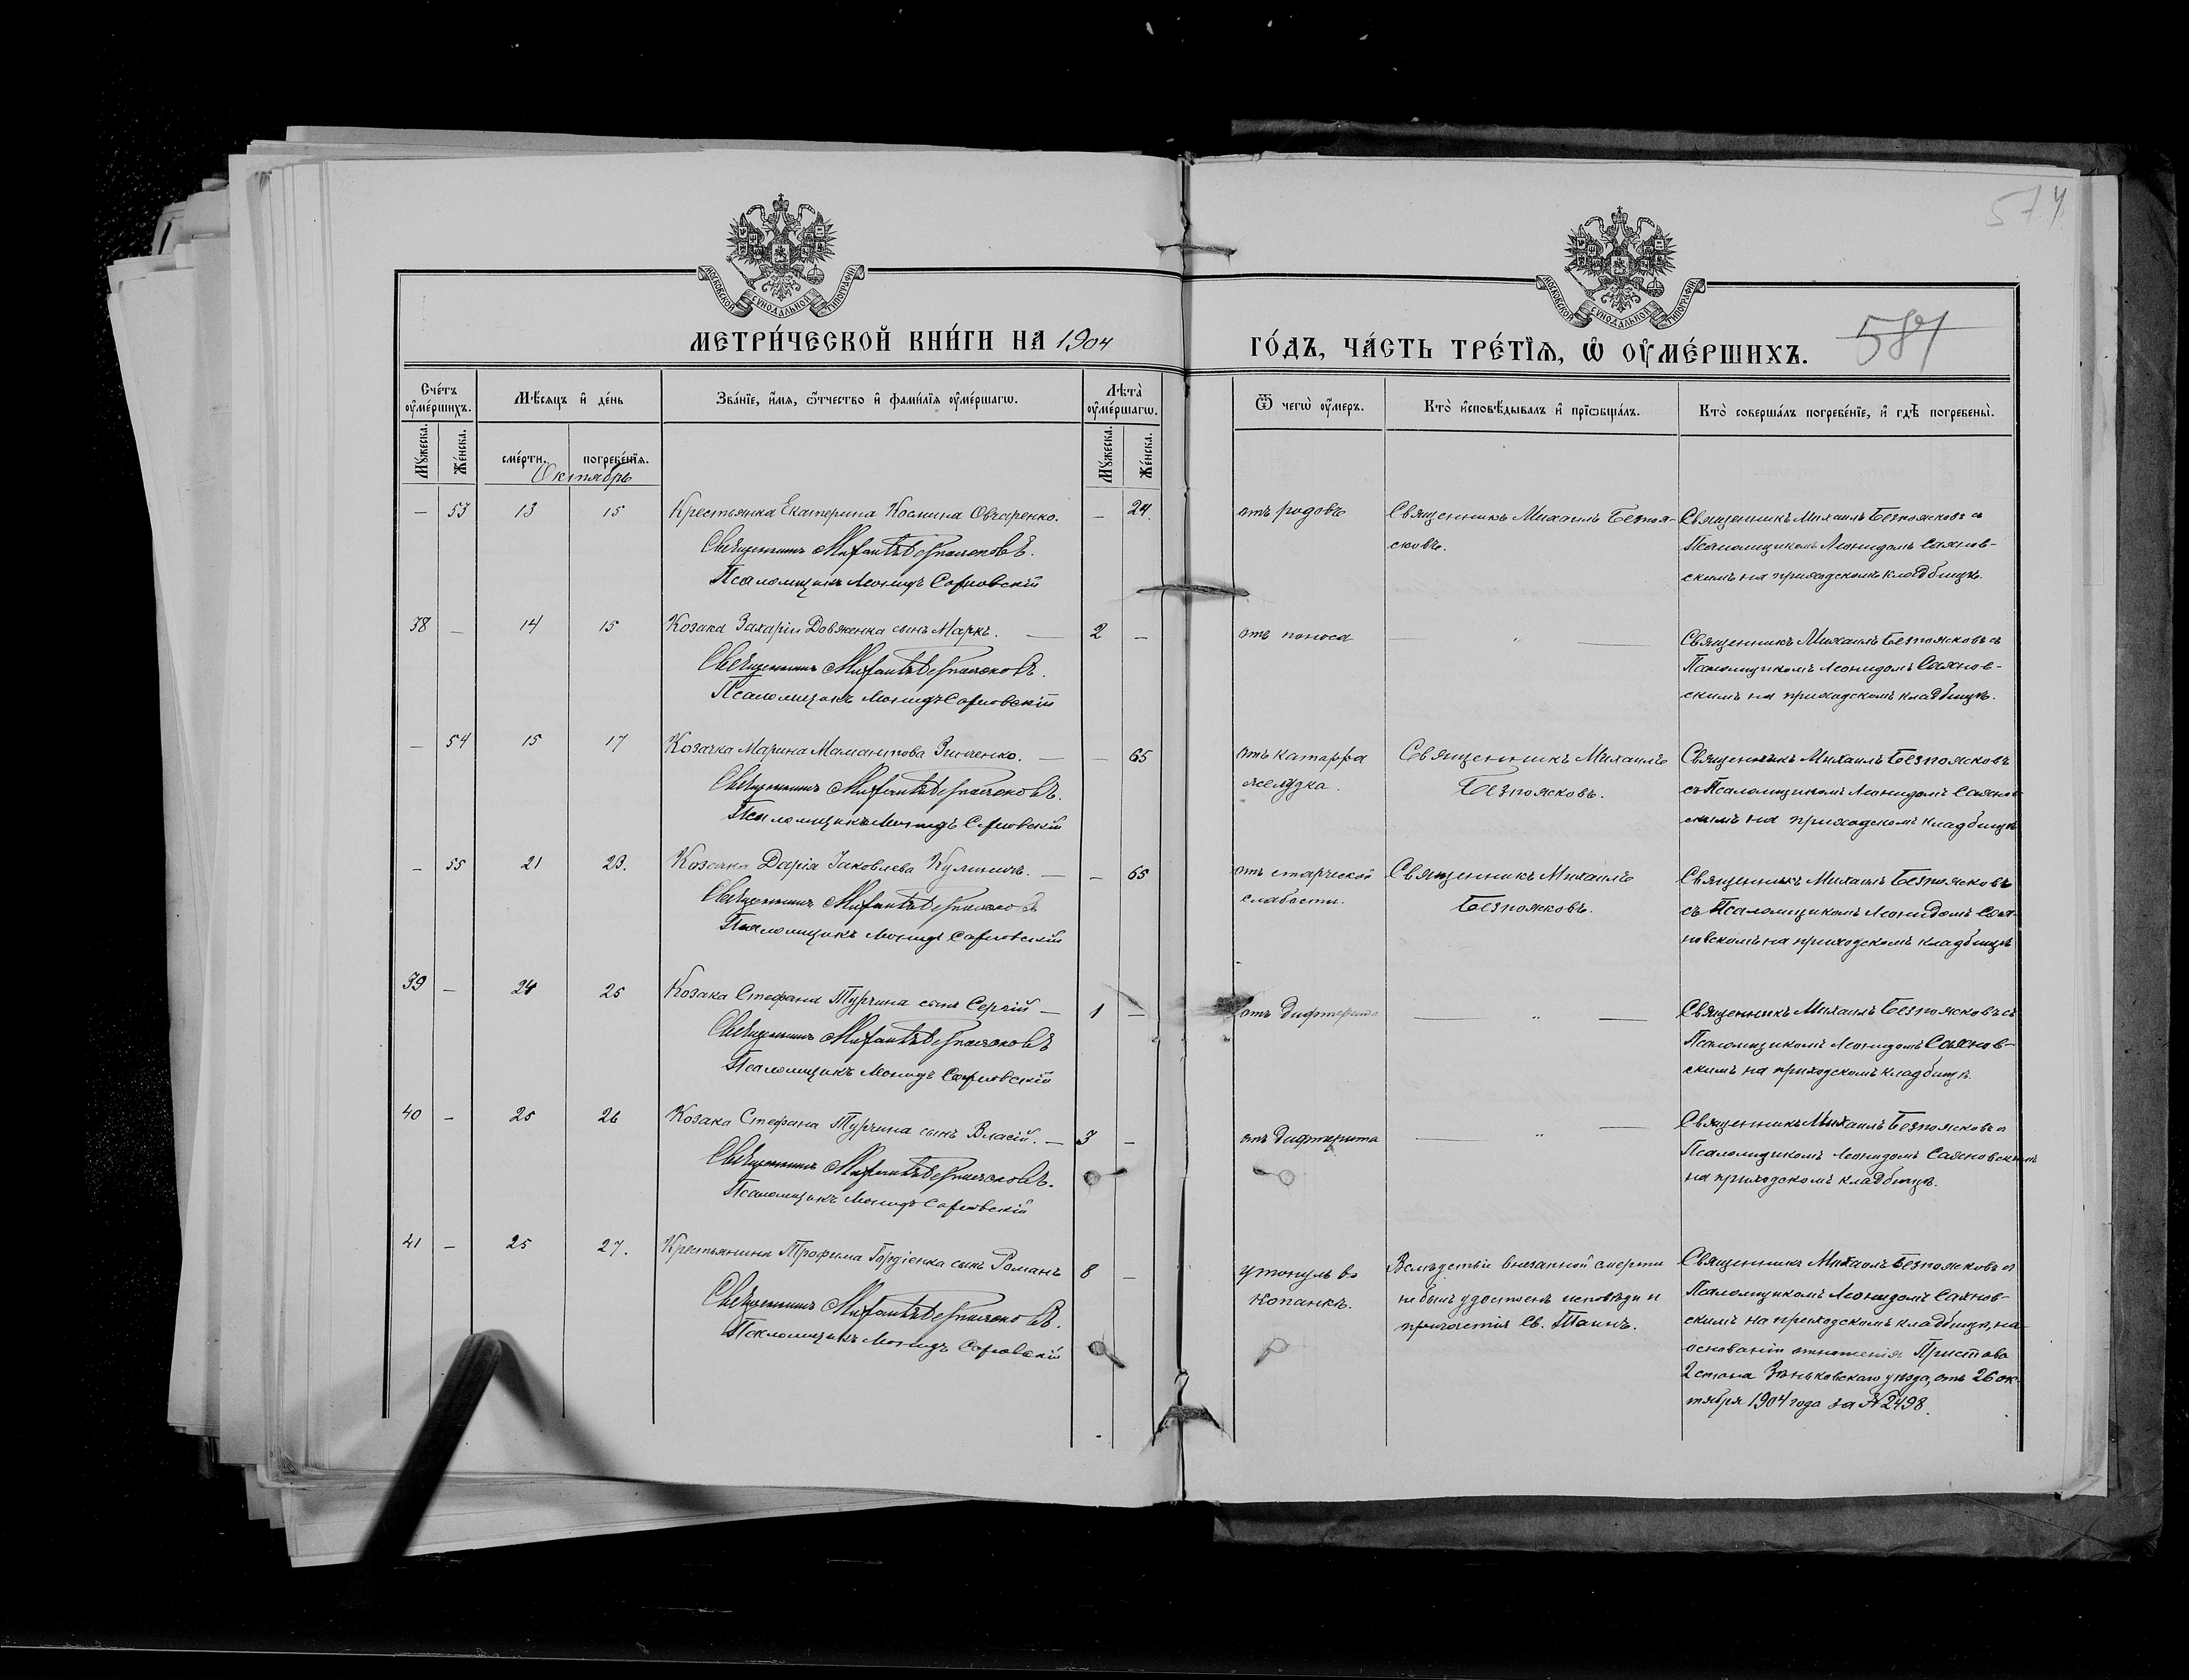 574
МОСКОВСКОЙ СѴНОДАЛЬНОЙ ТИПОГРАФІИ
МОСКОВСКОЙ СѴНОДАЛЬНОЙ ТИПОГРАФІИ
МЕТРИ́ЧЕСКОЙ КНИ́ГИ НА 1904
ГО́ДЪ, ЧА́СТЬ ТРЕ́ТЇѦ, Ѡ҆ ОУ҆МЕ́РШИХЪ.
Сче́тъ оу҆ме́ршихъ.
Мѣ́сяцъ и҆ де́нь
Зва́нїе, и҆́мя, ѻ҆́тчество и҆ фами́лїя оу҆ме́ршагѡ.
Лѣта̀ оу҆ме́ршагѡ.
Ѿ чегѡ̀ оу҆́меръ.
Кто̀ и҆сповѣ́дывалъ и҆ прїѡбща́лъ.
Кто̀ соверша́лъ погребе́нїе, и҆ гдѣ̀ погребены̀.
Мꙋ́жеска.
Же́нска.
сме́рти.
погребе́нїя.
Мꙋ́жеска.
Же́нска.
Октябрь
— 53 13 15 Крестьянка Екатерина Космина Овчаренко. — 24
Священникъ Михаилъ Безпоясковъ.
Псаломщикъ Леонидъ Саяновскій
отъ родовъ
Священникъ Михаилъ Безпоя-
сковъ.
Священникъ Михаилъ Безпоясковъ съ
Псаломщикомъ Леонидомъ Саянов-
скимъ на приходскомъ кладбищѣ.
38 — 14 15 Козака Захарія Довженка сынъ Маркъ. — 2 —
Священникъ Михаилъ Безпоясковъ.
Псаломщикъ Леонидъ Саяновскій
отъ поноса
— " —
Священникъ Михаилъ Безпоясковъ съ
Псаломщикомъ Леонидомъ Саянов-
скимъ на приходскомъ кладбищѣ.
— 54 15 17 Козачка Марина Мамантова Зинченко. — — 65
Священникъ Михаилъ Безпоясковъ.
Псаломщикъ Леонидъ Саяновскій
отъ катарра
желудка.
Священникъ Михаилъ
Безпоясковъ.
Священникъ Михаилъ Безпоясковъ
съ Псаломщикомъ Леонидомъ Саянов-
скимъ на приходскомъ кладбищѣ
— 55 21 23. Козачка Дарія Іаковлева Кулиничъ. — — 65
Священникъ Михаилъ Безпоясковъ
Псаломщикъ Леонидъ Саяновскій
отъ старческой
слабости.
Священникъ Михаилъ
Безпоясковъ.
Священникъ Михаилъ Безпоясковъ
съ Псаломщикомъ Леонидомъ Сая-
новскомъ на приходскомъ кладбищѣ
39 — 24 25 Козака Стефана Турчина сынъ Сергій — 1 —
Священникъ Михаилъ Безпоясковъ
Псаломщикъ Леонидъ Саяновскій
отъ дифтерита
— " —
Священникъ Михаилъ Безпоясковъ съ
Псаломщикомъ Леонидомъ Саянов-
скимъ на приходскомъ кладбищѣ.
40 — 25 26 Козака Стефана Турчина сынъ Власій. — 3 —
Священникъ Михаилъ Безпоясковъ.
Псаломщикъ Леонидъ Саяновскій
отъ дифтерита
— " —
Священникъ Михаилъ Безпоясковъ съ
Псаломщикомъ Леонидомъ Саяновскимъ
на приходскомъ кладбищѣ.
41 — 25 27. Крестьянина Трофима Гордіенка сынъ Романъ 8 —
Священникъ Михаилъ Безпоясковъ.
Псаломщикъ Леонидъ Саяновскій
утонулъ въ
копанкѣ.
Вслѣдствіе внезапной смерти
не былъ удостоенъ исповѣди и
причастія Св. Таинъ.
Священникъ Михаилъ Безпоясковъ съ
Псаломщикомъ Леонидомъ Саянов-
скимъ на приходскомъ кладбищѣ, на
основаніи отношенія Пристава
2 стана Зеньковскаго уѣзда, отъ 26 ок-
тября 1904 года за № 2498.